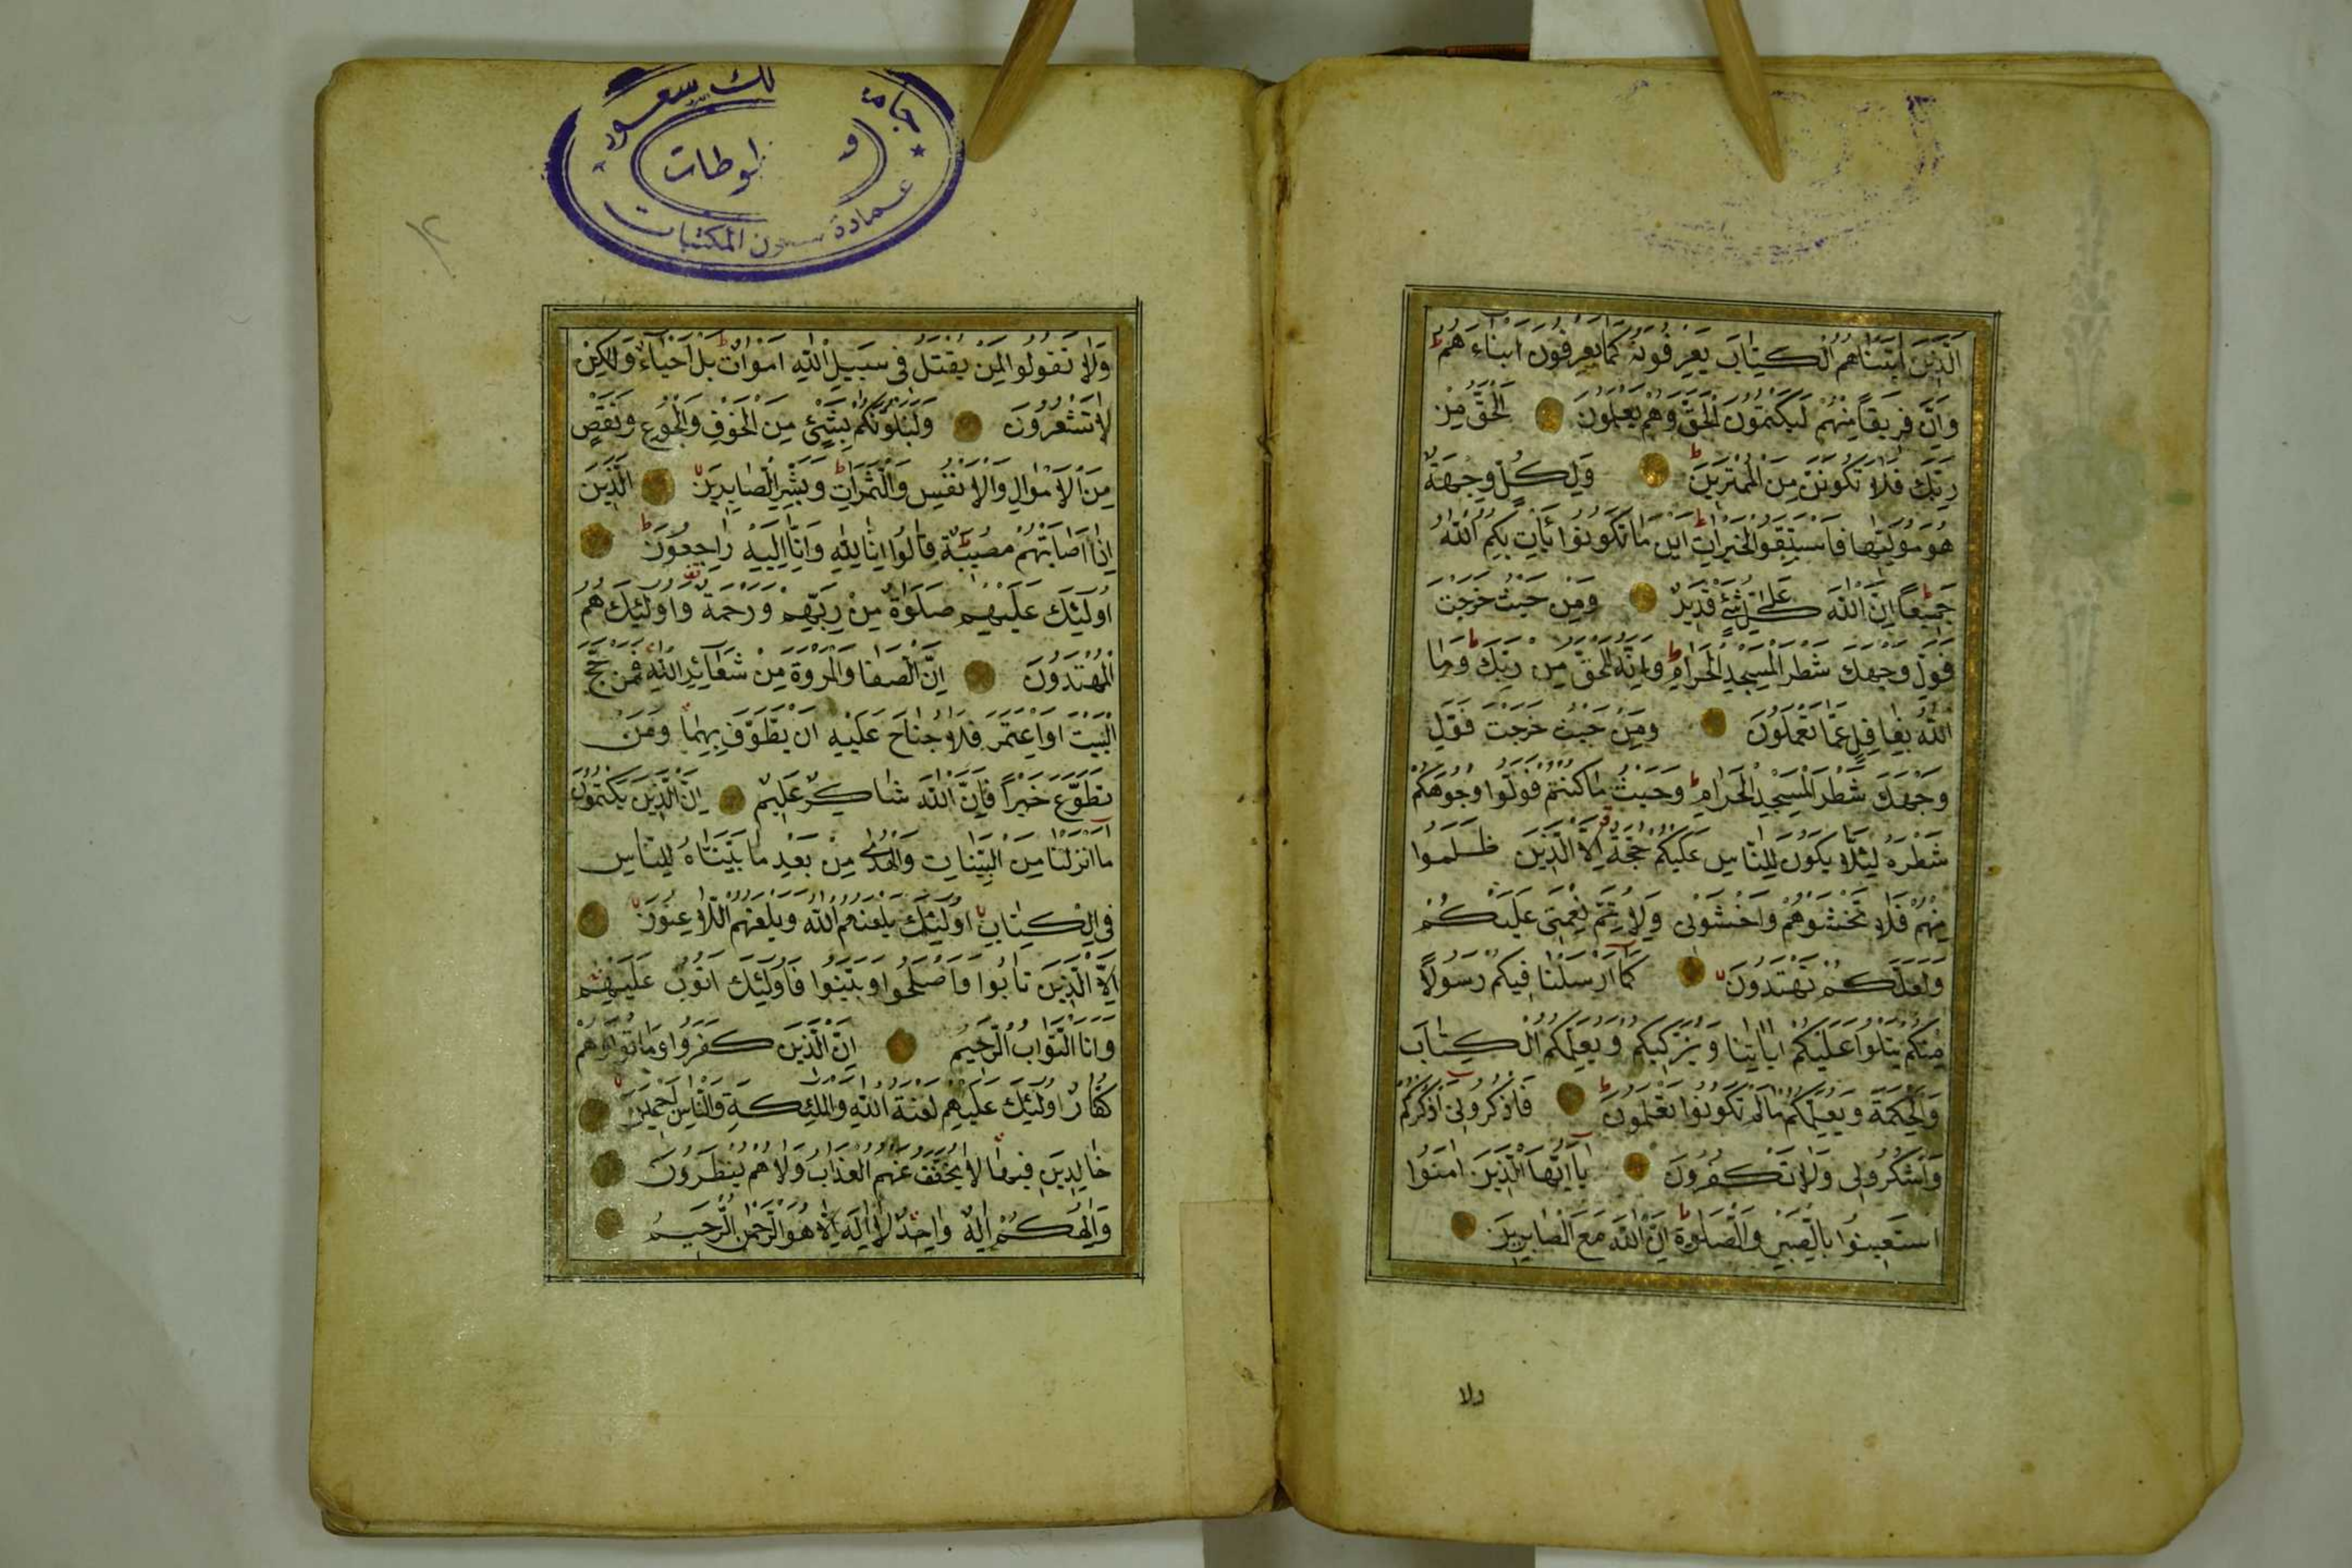 الَّذِينَ اٰتَيْنَاهُمُ الْكِتَابَ يَعْرِفُونَهُ كَمَا يَعْرِفُونَ اَبْنَاءَهُمْ ط
وَاِنَّ فَرِيقًا مِنْهُمْ لَيَكْتُمُونَ الْحَقَّ وَهُمْ يَعْلَمُونَ الْحَقُّ مِنْ
رَبِّكَ فَلَا تَكُونَنَّ مِنَ الْمُمْتَرِينَ ط وَلِكُلٍّ وِجْهَةٌ
هُوَ مُوَلِّيهَا فَاسْتَبِقُوا الْخَيْرَاتِ ط اَيْنَ مَا تَكُونُوا يَأْتِ بِكُمُ اللّٰهُ
جَمِيعًا ط اِنَّ اللّٰهَ عَلٰى كُلِّ شَيْءٍ قَدِيرٌ وَمِنْ حَيْثُ خَرَجْتَ
فَوَلِّ وَجْهَكَ شَطْرَ الْمَسْجِدِ الْحَرَامِ ط وَاِنَّهُ لَلْحَقُّ مِنْ رَبِّكَ ط وَمَا
اللّٰهُ بِغَافِلٍ عَمَّا تَعْمَلُونَ وَمِنْ حَيْثُ خَرَجْتَ فَوَلِّ
وَجْهَكَ شَطْرَ الْمَسْجِدِ الْحَرَامِ ط وَحَيْثُ مَا كُنْتُمْ فَوَلُّوا وُجُوهَكُمْ
شَطْرَهُ لِئَلَّا يَكُونَ لِلنَّاسِ عَلَيْكُمْ حُجَّةٌ اِلَّا الَّذِينَ ظَلَمُوا
مِنْهُمْ فَلَا تَخْشَوْهُمْ وَاخْشَوْنِى وَلِاُتِمَّ نِعْمَتِى عَلَيْكُمْ
وَلَعَلَّكُمْ تَهْتَدُونَ كَمَا اَرْسَلْنَا فِيكُمْ رَسُولًا
مِنْكُمْ يَتْلُوا عَلَيْكُمْ اٰيَاتِنَا وَيُزَكِّيكُمْ وَيُعَلِّمُكُمُ الْكِتَابَ
وَالْحِكْمَةَ وَيُعَلِّمُكُمْ مَا لَمْ تَكُونُوا تَعْلَمُونَ ط فَاذْكُرُونِى اَذْكُرْكُمْ
وَاشْكُرُوا لِى وَلَا تَكْفُرُونِ يَا اَيُّهَا الَّذِينَ اٰمَنُوا
اسْتَعِينُوا بِالصَّبْرِ وَالصَّلٰوةِ ط اِنَّ اللّٰهَ مَعَ الصَّابِرِينَ
ولا
لك سعود
عمادة شؤون المكتبات
وَلَا تَقُولُوا لِمَنْ يُقْتَلُ فِى سَبِيلِ اللّٰهِ اَمْوَاتٌ ط بَلْ اَحْيَاءٌ وَلٰكِنْ
لَا تَشْعُرُونَ وَلَنَبْلُوَنَّكُمْ بِشَيْءٍ مِنَ الْخَوْفِ وَالْجُوعِ وَنَقْصٍ
مِنَ الْاَمْوَالِ وَالْاَنْفُسِ وَالثَّمَرَاتِ ط وَبَشِّرِ الصَّابِرِينَ الَّذِينَ
اِذَا اَصَابَتْهُمْ مُصِيبَةٌ قَالُوا اِنَّا لِلّٰهِ وَاِنَّا اِلَيْهِ رَاجِعُونَ ط
اُولٰئِكَ عَلَيْهِمْ صَلَوَاتٌ مِنْ رَبِّهِمْ وَرَحْمَةٌ وَاُولٰئِكَ هُمُ
الْمُهْتَدُونَ اِنَّ الصَّفَا وَالْمَرْوَةَ مِنْ شَعَائِرِ اللّٰهِ فَمَنْ حَجَّ
الْبَيْتَ اَوِ اعْتَمَرَ فَلَا جُنَاحَ عَلَيْهِ اَنْ يَطَّوَّفَ بِهِمَا وَمَنْ
تَطَوَّعَ خَيْرًا فَاِنَّ اللّٰهَ شَاكِرٌ عَلِيمٌ اِنَّ الَّذِينَ يَكْتُمُونَ
مَا اَنْزَلْنَا مِنَ الْبَيِّنَاتِ وَالْهُدٰى مِنْ بَعْدِ مَا بَيَّنَّاهُ لِلنَّاسِ
فِى الْكِتَابِ اُولٰئِكَ يَلْعَنُهُمُ اللّٰهُ وَيَلْعَنُهُمُ اللَّاعِنُونَ
اِلَّا الَّذِينَ تَابُوا وَاَصْلَحُوا وَبَيَّنُوا فَاُولٰئِكَ اَتُوبُ عَلَيْهِمْ
وَاَنَا التَّوَّابُ الرَّحِيمُ اِنَّ الَّذِينَ كَفَرُوا وَمَاتُوا وَهُمْ
كُفَّارٌ اُولٰئِكَ عَلَيْهِمْ لَعْنَةُ اللّٰهِ وَالْمَلٰئِكَةِ وَالنَّاسِ اَجْمَعِينَ
خَالِدِينَ فِيهَا لَا يُخَفَّفُ عَنْهُمُ الْعَذَابُ وَلَا هُمْ يُنْظَرُونَ
وَاِلٰهُكُمْ اِلٰهٌ وَاحِدٌ لَا اِلٰهَ اِلَّا هُوَ الرَّحْمٰنُ الرَّحِيمُ